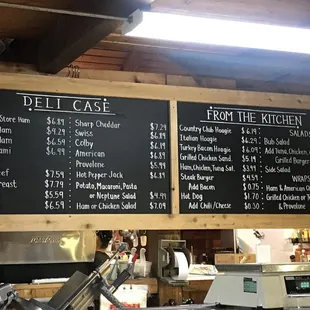 DELI CASE
Store Ham $6.89
$9.29
$6.59
$6.99
$7.59
$7.79
$5.59
$6.59
Sharp Cheddar $7.29
Swiss $6.89
Colby $6.19
American $6.89
Provolone $6.99
Hot Pepper Jack $6.19
Potato, Macaroni, Pasta
or Neptune Salad $4.99
Ham or Chicken Salad
FROM THE KITCHEN
Country Club Hoagie $6.19
Italian Hoagie $6.29
Turkey Bacon Hoagie $6.49
Grilled Chicken Sand.
Ham, Chicken, Tuna Sal.
Steak Burger
Add Bacon
Hot Dog $1.70
Add Chili/Cheese
SALADS
Bub Salad
Add Tuna, Chicken
Grilled Burger
Side Salad
WRAPS
Ham & American
Grilled Chicken
& Provolone